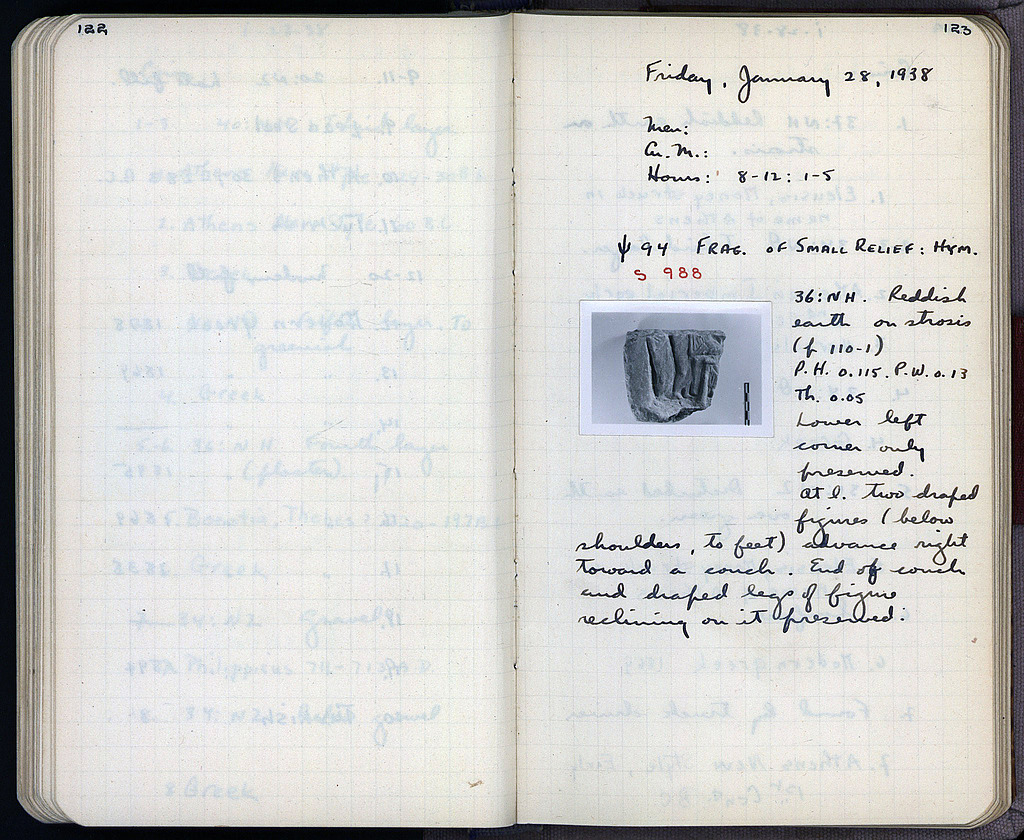 122
123
Friday, January 28, 1938
Men:
Cu. M.:
Hours: 8-12: 1-5
Ψ 94 FRAG. OF SMALL RELIEF: HYM.
S 988
36:NH. Reddish
earth on strosis
(p 110-1)
P.H. 0.115. P.W. 0.13
Th. 0.05
Lower left
corner only
preserved.
At l. two draped
figures (below
shoulders, to feet) advance right
toward a couch. End of couch
and draped legs of figure
reclining on it preserved.